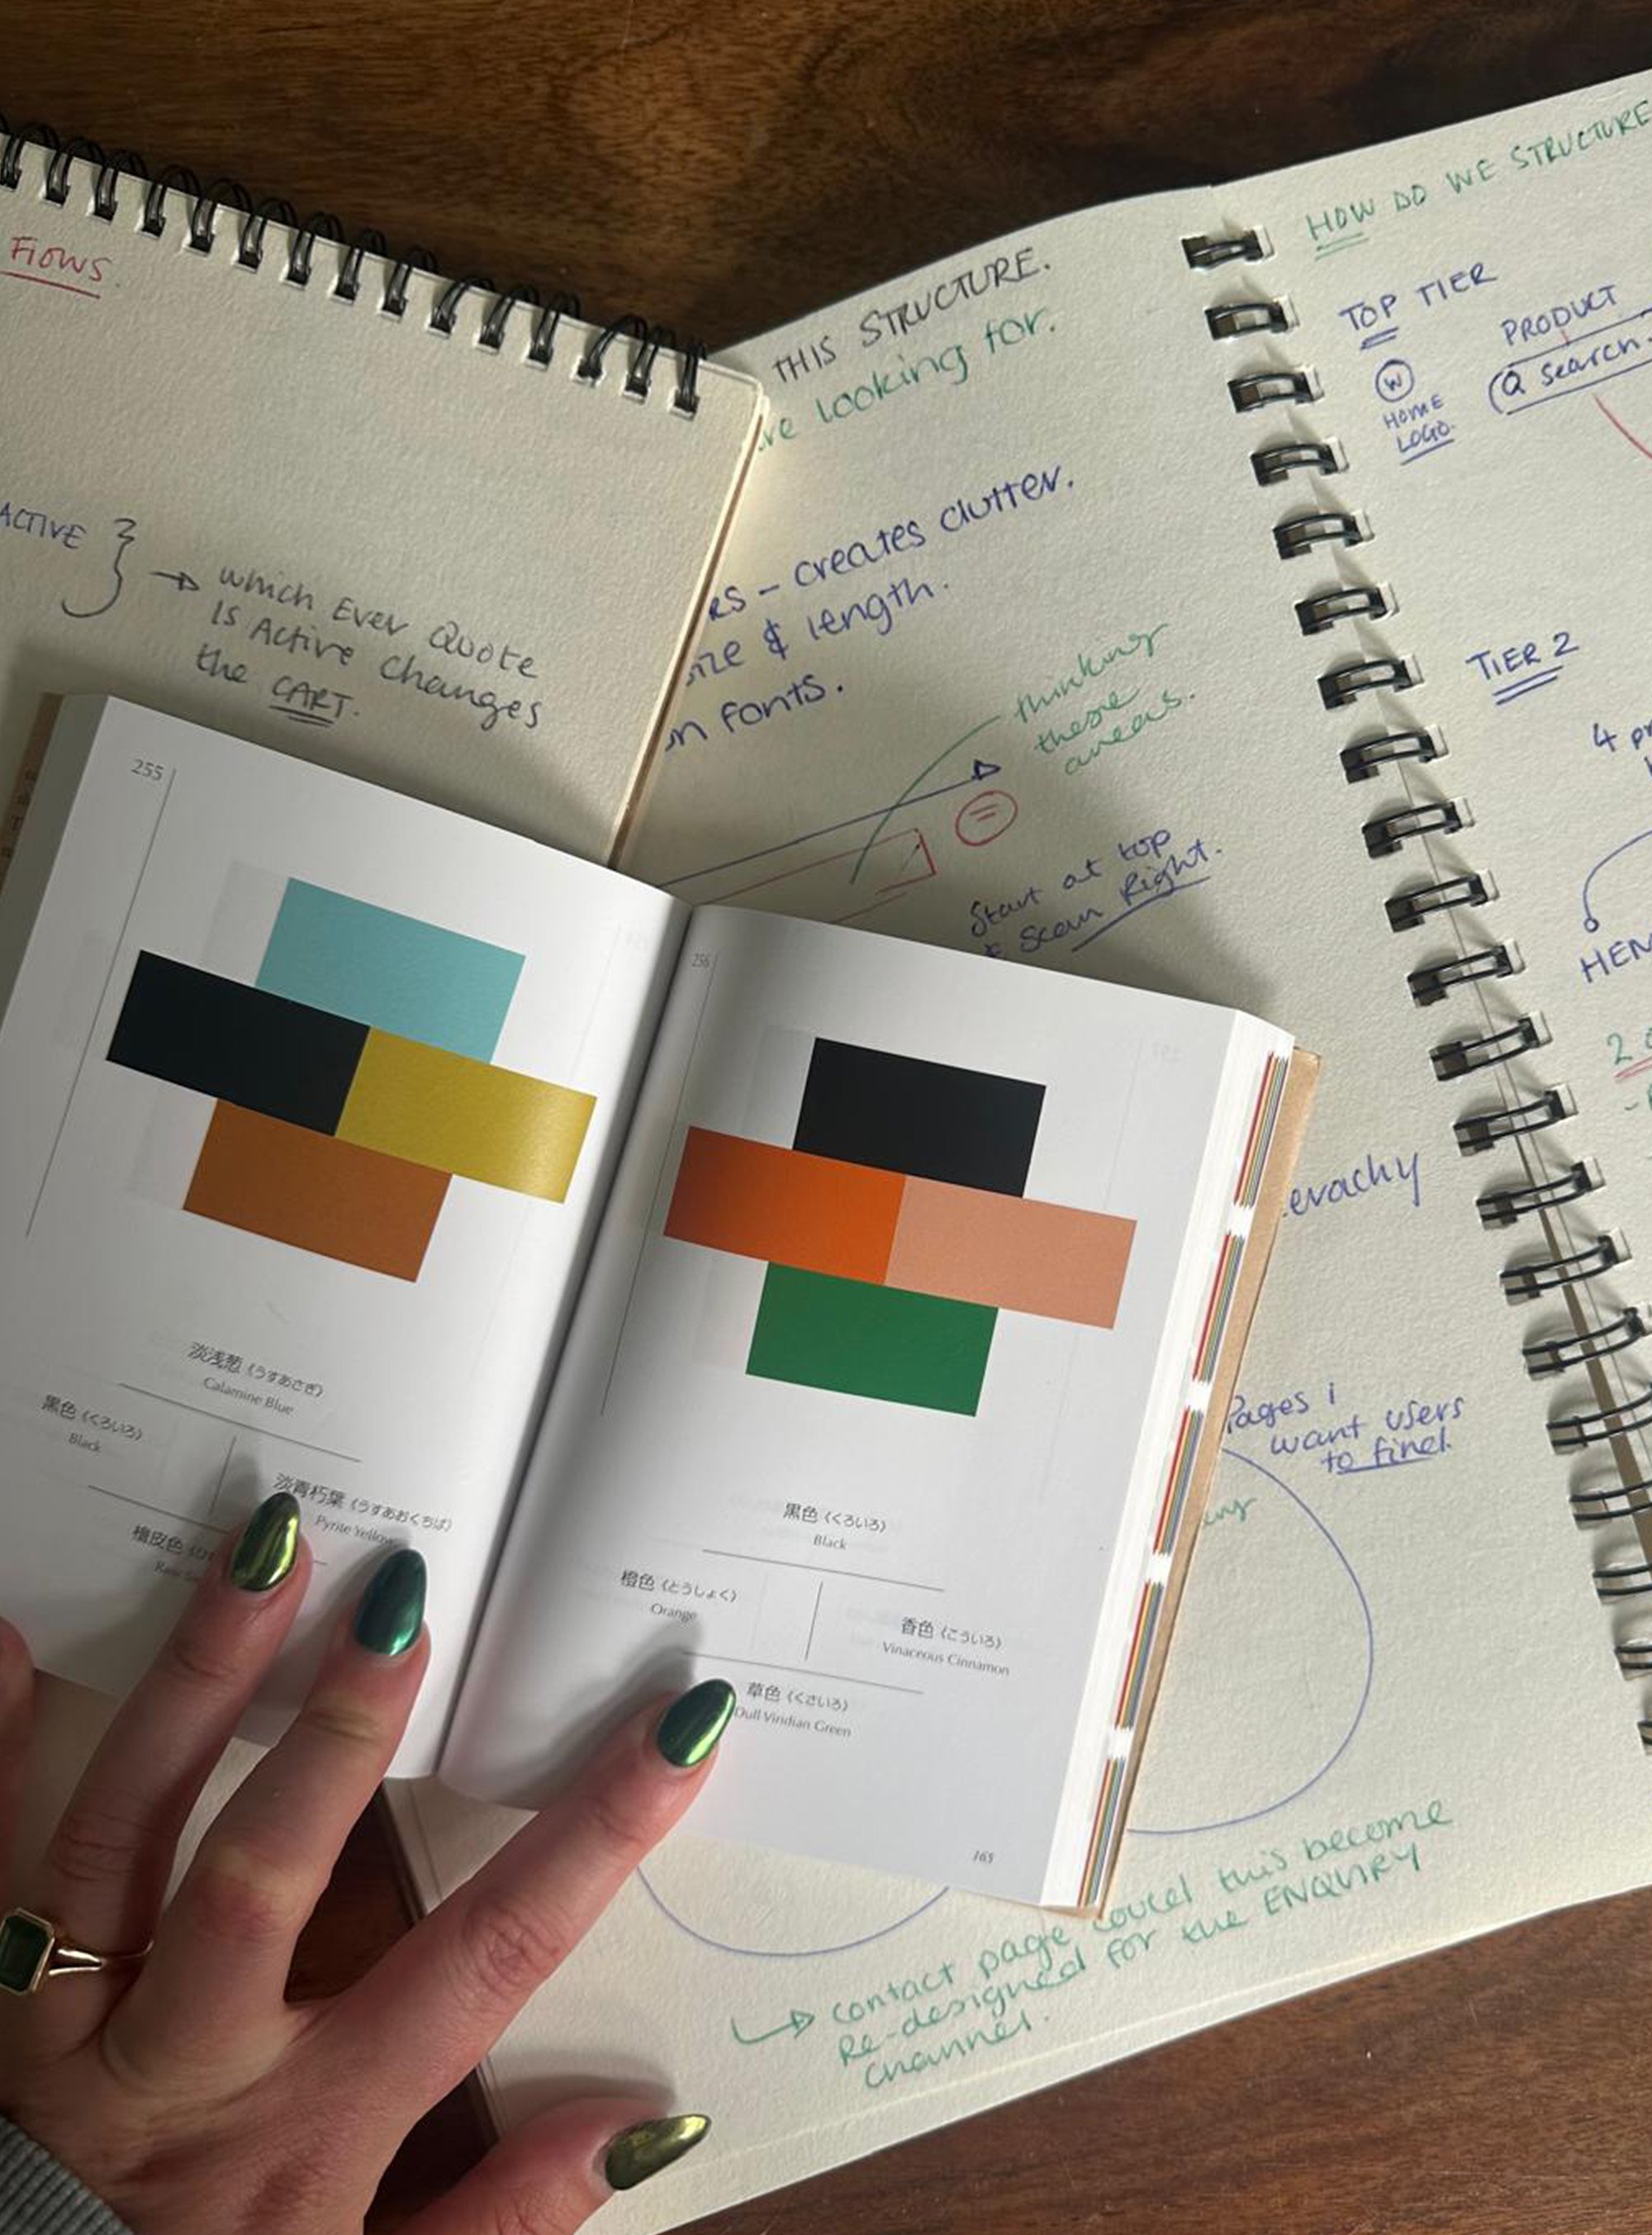 FLOWS.
ACTIVE
which Ever Quote
Is Active changes
the CART.
THIS STRUCTURE.
looking for.
creates clutter.
& length.
fonts.
thinking
these
areas.
Start at top
scan Right.
Pages i
want users
to find.
contact page could this become
Re-designed for the ENQUIRY
channel.
HOW DO WE STRUCTURE
TOP TIER
W
HOME
LOGO.
PRODUCT
search.
TIER 2
4
255
淡浅葱 (うすあさぎ)
Calamine Blue
黒色 (くろいろ)
Black
淡青朽葉 (うすあおくちば)
Pyrite Yellow
檜皮色
256
黒色 (くろいろ)
Black
橙色 (とうしょく)
Orange
香色 (こういろ)
Vinaceous Cinnamon
草色 (くさいろ)
Dull Viridian Green
165